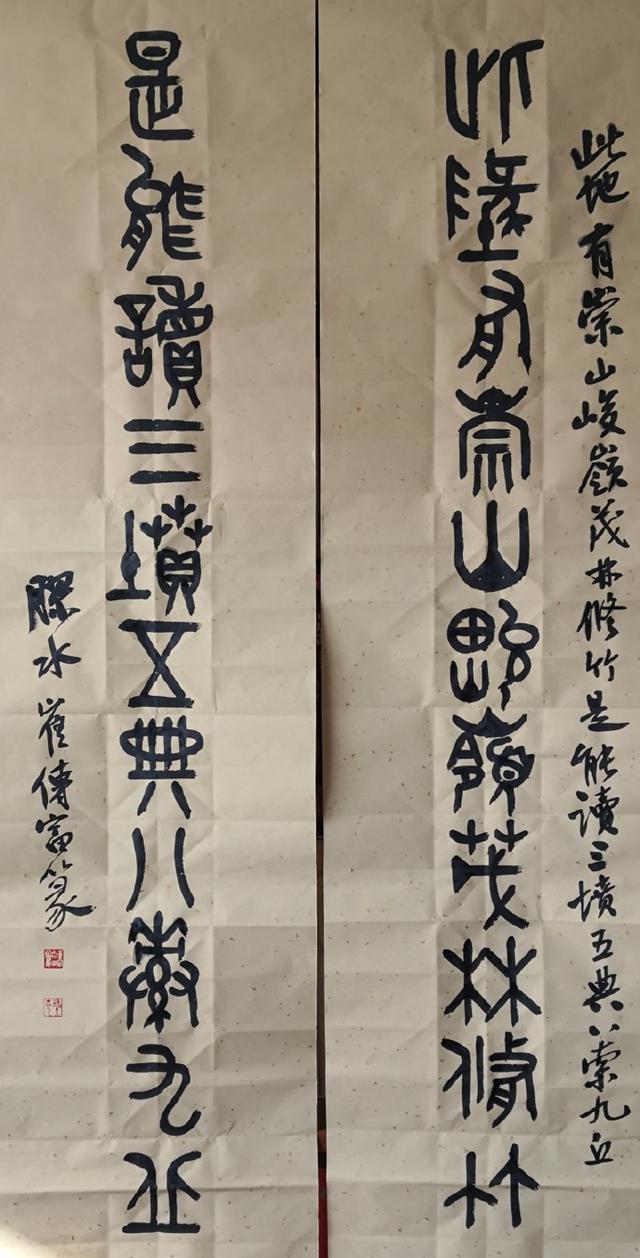 此地有崇山峻嶺茂林修竹是能讀三墳五典八索九丘
此地有崇山峻嶺茂林脩竹
是能讀三墳五典八索九丘
膠水崔傳富篆